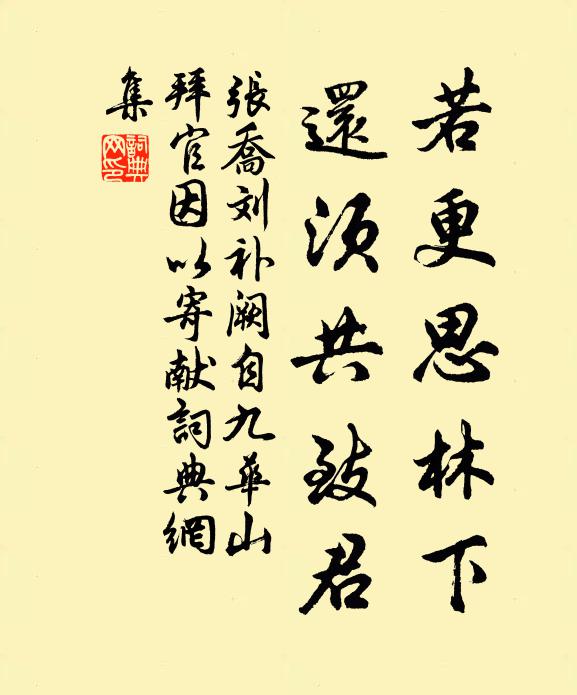 若更思林下
還須共致君
張喬刘补阙自九華山
拜官因以寄献詞典網
集
詞典網印